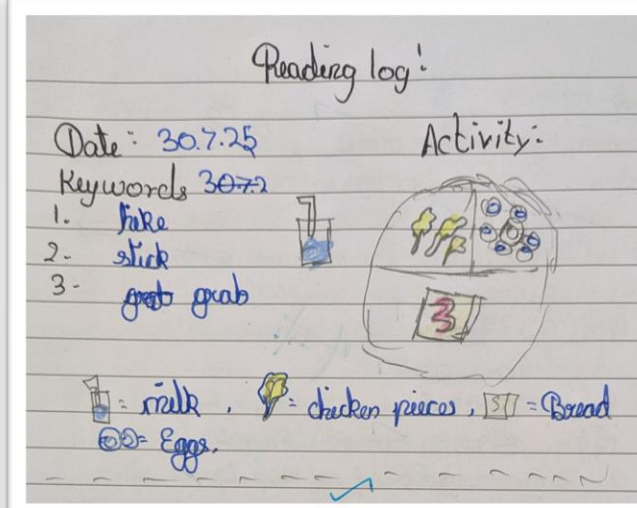 Reading log!
Date: 30.7.25
Activity:
Keywords
1. hike
2- stick
3- grab
3
= milk, = chicken pieces, = Bread
= Eggs.